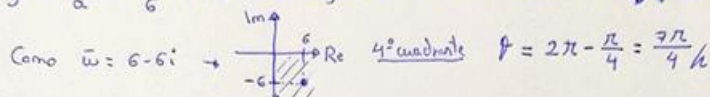 a 6
Im
Como w̄ = 6-6i → 6 Re 4º cuadrante φ = 2π - π/4 = 7π/4
-6